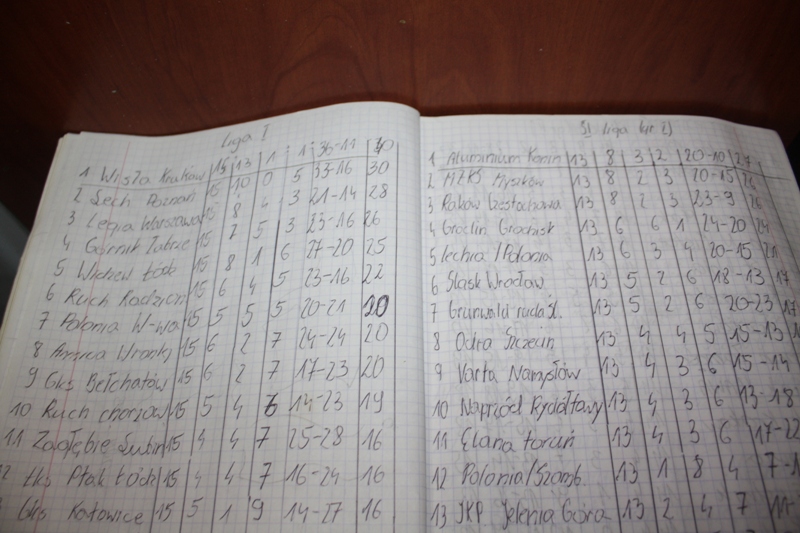 Liga I
1 Wisła Kraków 15 13 1 1 36-11 40
2 Lech Poznań 15 10 0 5 33-16 30
3 Legia Warszawa 15 8 4 3 21-14 28
4 Górnik Zabrze 15 7 5 3 23-16 26
5 Widzew Łódź 15 8 1 6 27-20 25
6 Ruch Radzion 15 6 4 5 23-16 22
7 Polonia W-wa 15 5 5 5 20-21 20
8 Amica Wronki 15 6 2 7 24-24 20
9 Gks Bełchatów 15 6 2 7 17-23 20
10 Ruch chorzow 15 5 4 6 14-23 19
11 Zagłębie Lubin 15 4 4 7 25-28 16
12 Łks Ptak Łódź 15 4 4 7 16-24 16
Gks Katowice 15 5 1 9 14-27 16
II liga
1 Aluminium Konin 13 8 3 2 20-10 27
2 MZKS Myszków 13 8 2 3 20-15 26
3 Raków Częstochowa 13 8 2 3 23-9 26
4 Groclin Grodzisk 13 6 6 1 24-20 24
5 Lechia/Polonia 13 6 3 4 20-15 21
6 Śląsk Wrocław 13 5 2 6 18-13 17
7 Grunwald ruda śl. 13 5 2 6 20-23 17
8 Odra Szczecin 13 4 4 5 15-13
9 Varta Namysłów 13 4 3 6 15-14
10 Naprzód Rydułtowy 13 4 3 6 13-18
11 Elana toruń 13 4 3 6 17-22
12 Polonia/Szomb. 13 1 8 4
13 JKP Jelenia Góra 13 2 4 7